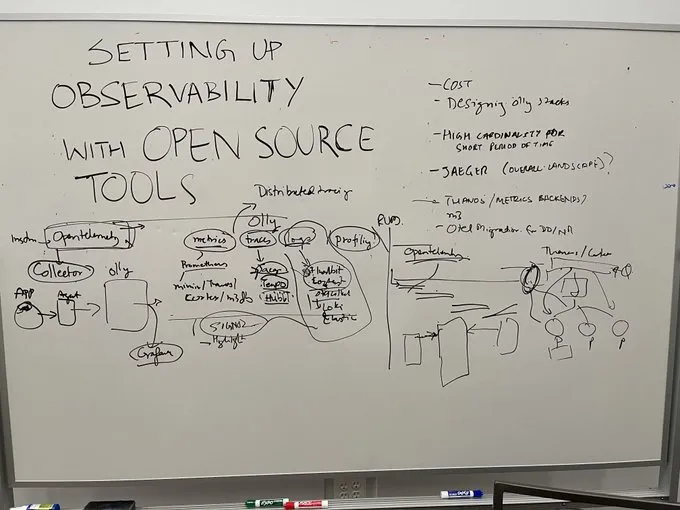 SETTING UP
OBSERVABILITY
WITH OPEN SOURCE
TOOLS
- COST
- Designing o11y stacks
- HIGH CARDINALITY FOR
SHORT PERIOD OF TIME
- JAEGER (OVERALL LANDSCAPE)?
THANOS/METRICS BACKENDS?
m3
- Otel Migration for DD/NR
Distributed tracing
O11y
Opentelemetry
metrics
traces
logs
profiling
RUM
Collector
O11y
APP
Agent
Grafana
Prometheus
mimir/Thanos/
Cortex/m3db
Jaeger
Tempo
fluentbit
Loki
Elastic
SIGNOZ
Highlight
Q
P
P
P